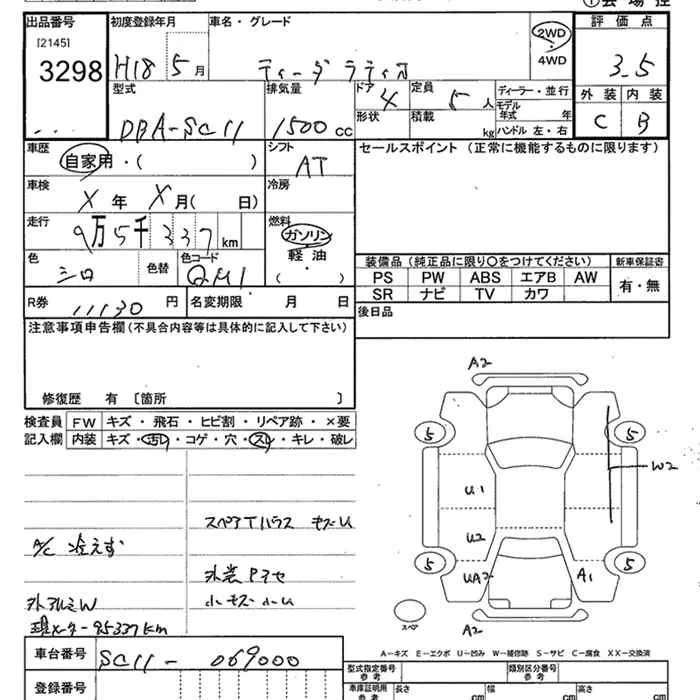 ①会場控
出品番号
[2145]
3298
初度登録年月
H18 5月
車名・グレード
ティーダ ラティオ
2WD
・
4WD
評価点
3.5
外装 内装
C B
型式
DBA-SC11
排気量
1500cc
ドア
4
形状
定員
5人
積載
kg
ディーラー・並行
モデル年式 年
ハンドル 左・右
車歴
自家用・( )
シフト
AT
セールスポイント (正常に機能するものに限ります)
車検
X年 X月( 日)
冷房
走行
9万5千337km
燃料
ガソリン
軽油
( )
色
シロ
色替
色コード
QM1
装備品(純正品に限り○をつけてください)
新車保証書
PS PW ABS エアB AW
SR ナビ TV カワ
有・無
R券
11130円
名変期限 月 日
後日品
注意事項申告欄(不具合内容等は具体的に記入して下さい)
修復歴 有 〔箇所 〕
検査員
記入欄
FW キズ・飛石・ヒビ割・リペア跡・×要
内装 キズ・汚レ・コゲ・穴・スレ・キレ・破レ
スペアT
A/C 冷えず
外装
外アルミW
小キズ 小U
現メーター 95337km
A2
5
5
W2
U1
U2
5
UA2
A1
5
スペア
A2
A-キズ E-エクボ U-凹み W-補修跡 S-サビ C-腐食 XX-交換済
車台番号
SC11-069000
登録番号
型式指定番号
参考
類別区分番号
車庫証明用
参考
長さ cm
幅 cm
高さ cm